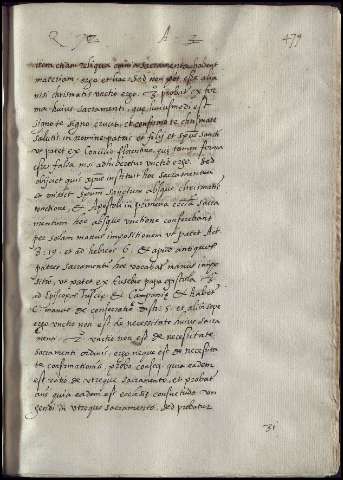 Q 72 A. 2 479
item etiam reliqua omnia sacramenta habent
materiam. ergo et hoc. sed non pot est alia
nisi chrismatis unctio ergo. 3. probat ex for
ma huius sacramenti, quæ huiusmodi est
signo te signo crucis, et confirmo te chrismate
salutis in nomine patris et filij et spus sancti
ut patet ex Concilio florentino, quæ tamen forma
esset falsa nisi adhiberetur unctio ergo. Sed
objiciet quis xpus instituit hoc sacramentum
et misit spum sanctum absque chrismatis
unctione, et Apostoli in primæva ecclia sacra
mentum hoc absque unctione conferebant
per solam manus impositionem ut patet Act.
8. 19. et ad hebreos 6. et apud antiquos
patres sacramentum hoc vocabat manus impo
sitio, ut patet ex Eusebio papa epistola 3.
ad Episcopos Tusciæ et Campaniæ et habet
C. manus de consecratio dist. 5. et alias sæpe
ergo unctio non est de necessitate huius sacra
menti. 2. unctio non est de necessitate
sacramenti ordinis, ergo neque est de necessita
te confirmationis, probo conseq. quia eadem
est ratio de utroque sacramento, et probat
ans quia eadem est ecclesiæ consuetudo un
gendi in utroque sacramento. sed probatur